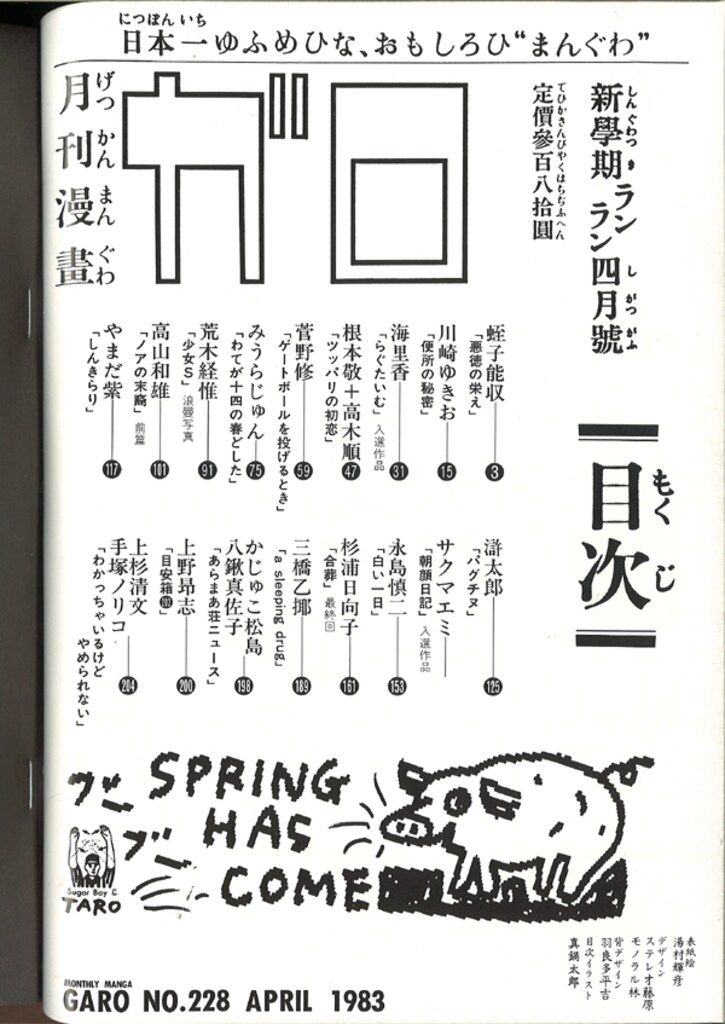 にっぽんいち
日本一ゆふめひな、おもしろひ“まんぐわ”
月刊漫畫
げつかんまんぐわ
ガロ
新學期ランラン四月號
定價參百八拾圓
目次
もくじ
蛭子能収 3
「悪徳の栄え」
川崎ゆきお 15
「便所の秘密」
海里香 31
「らぐたいむ」 入選作品
根本敬+高木順 47
「ツッパリの初恋」
菅野修 59
「ゲートボールを投げるとき」
みうらじゅん 75
「わてが十四の春どした」
荒木経惟 91
「少女S」 浪曼写真
高山和雄 101
「ノアの末裔」 前篇
やまだ紫 117
「しんきらり」
滸太郎 125
「パグチヌ」
サクマエミ
「朝顔日記」 入選作品
永島慎二 153
「白い一日」
杉浦日向子 161
「合葬」 最終回
三橋乙揶 189
「a sleeping drug」
かじゅこ松島
八鍬真佐子 198
「あらまあ荘ニュース」
上野昂志 200
「目安箱」
上杉清文
手塚ノリコ 204
「わかっちゃいるけど
やめられない」
ブー
ブー
SPRING
HAS
COME
Sugar Boy &
TARO
表紙絵
湯村輝彦
デザイン
ステレオ藤原
モノラル林
背デザイン
羽良多平吉
目次イラスト
真鍋太郎
MONTHLY MANGA
GARO NO.228 APRIL 1983